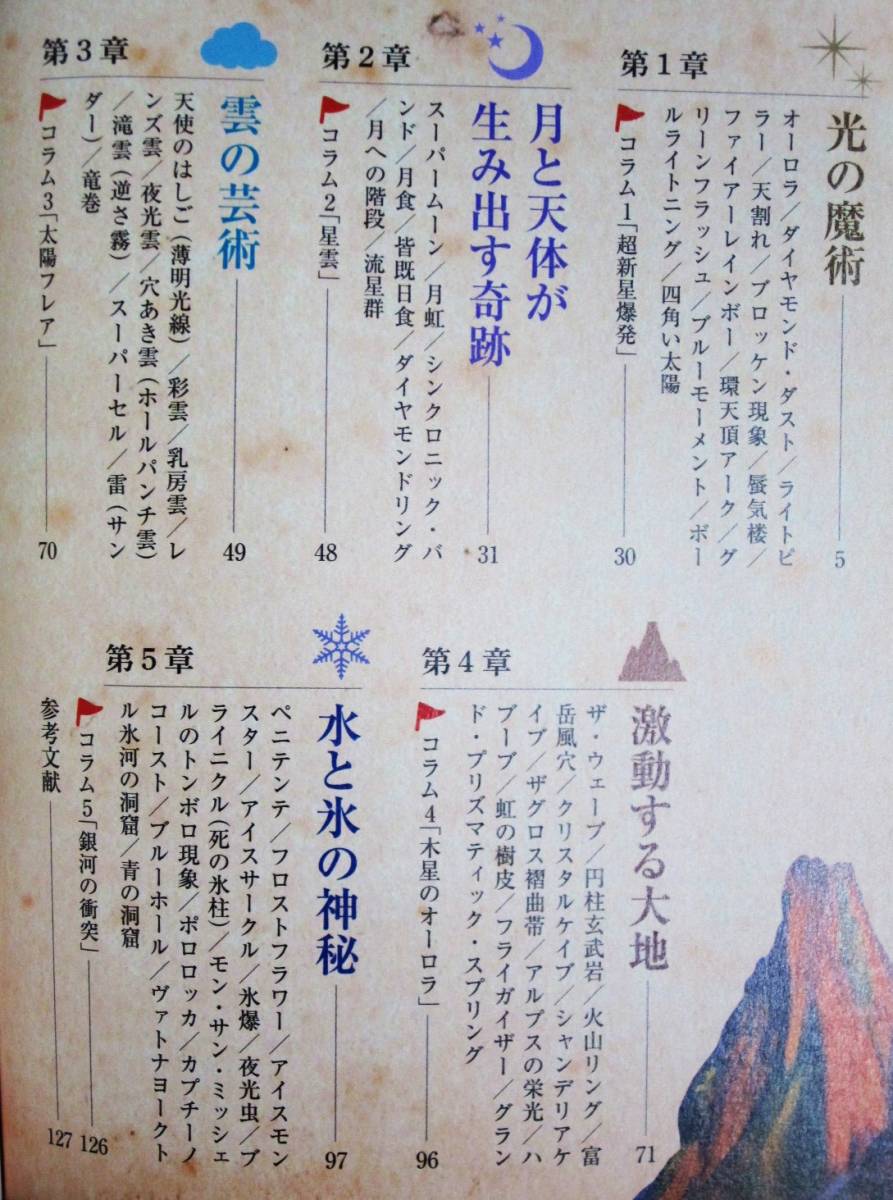 第1章
光の魔術
5
オーロラ／ダイヤモンド・ダスト／ライトピ
ラー／天割れ／ブロッケン現象／蜃気楼／
ファイアーレインボー／環天頂アーク／グ
リーンフラッシュ／ブルーモーメント／ボー
ルライトニング／四角い太陽
コラム1「超新星爆発」
30
第2章
月と天体が
生み出す奇跡
31
スーパームーン／月虹／シンクロニック・バ
ンド／月食／皆既日食／ダイヤモンドリング
／月への階段／流星群
コラム2「星雲」
48
第3章
雲の芸術
49
天使のはしご（薄明光線）／彩雲／乳房雲／レ
ンズ雲／夜光雲／穴あき雲（ホールパンチ雲）
／滝雲（逆さ霧）／スーパーセル／雷（サン
ダー）／竜巻
コラム3「太陽フレア」
70
第4章
激動する大地
71
ザ・ウェーブ／円柱玄武岩／火山リング／富
岳風穴／クリスタルケイブ／シャンデリアケ
イブ／ザグロス褶曲帯／アルプスの栄光／ハ
ブーブ／虹の樹皮／フライガイザー／グラン
ド・プリズマティック・スプリング
コラム4「木星のオーロラ」
96
第5章
水と氷の神秘
97
ペニテンテ／フロストフラワー／アイスモン
スター／アイスサークル／氷爆／夜光虫／ブ
ライニクル（死の氷柱）／モン・サン・ミッシェ
ルのトンボロ現象／ポロロッカ／カプチーノ
コースト／ブルーホール／ヴァトナヨークト
ル氷河の洞窟／青の洞窟
コラム5「銀河の衝突」
126
参考文献
127